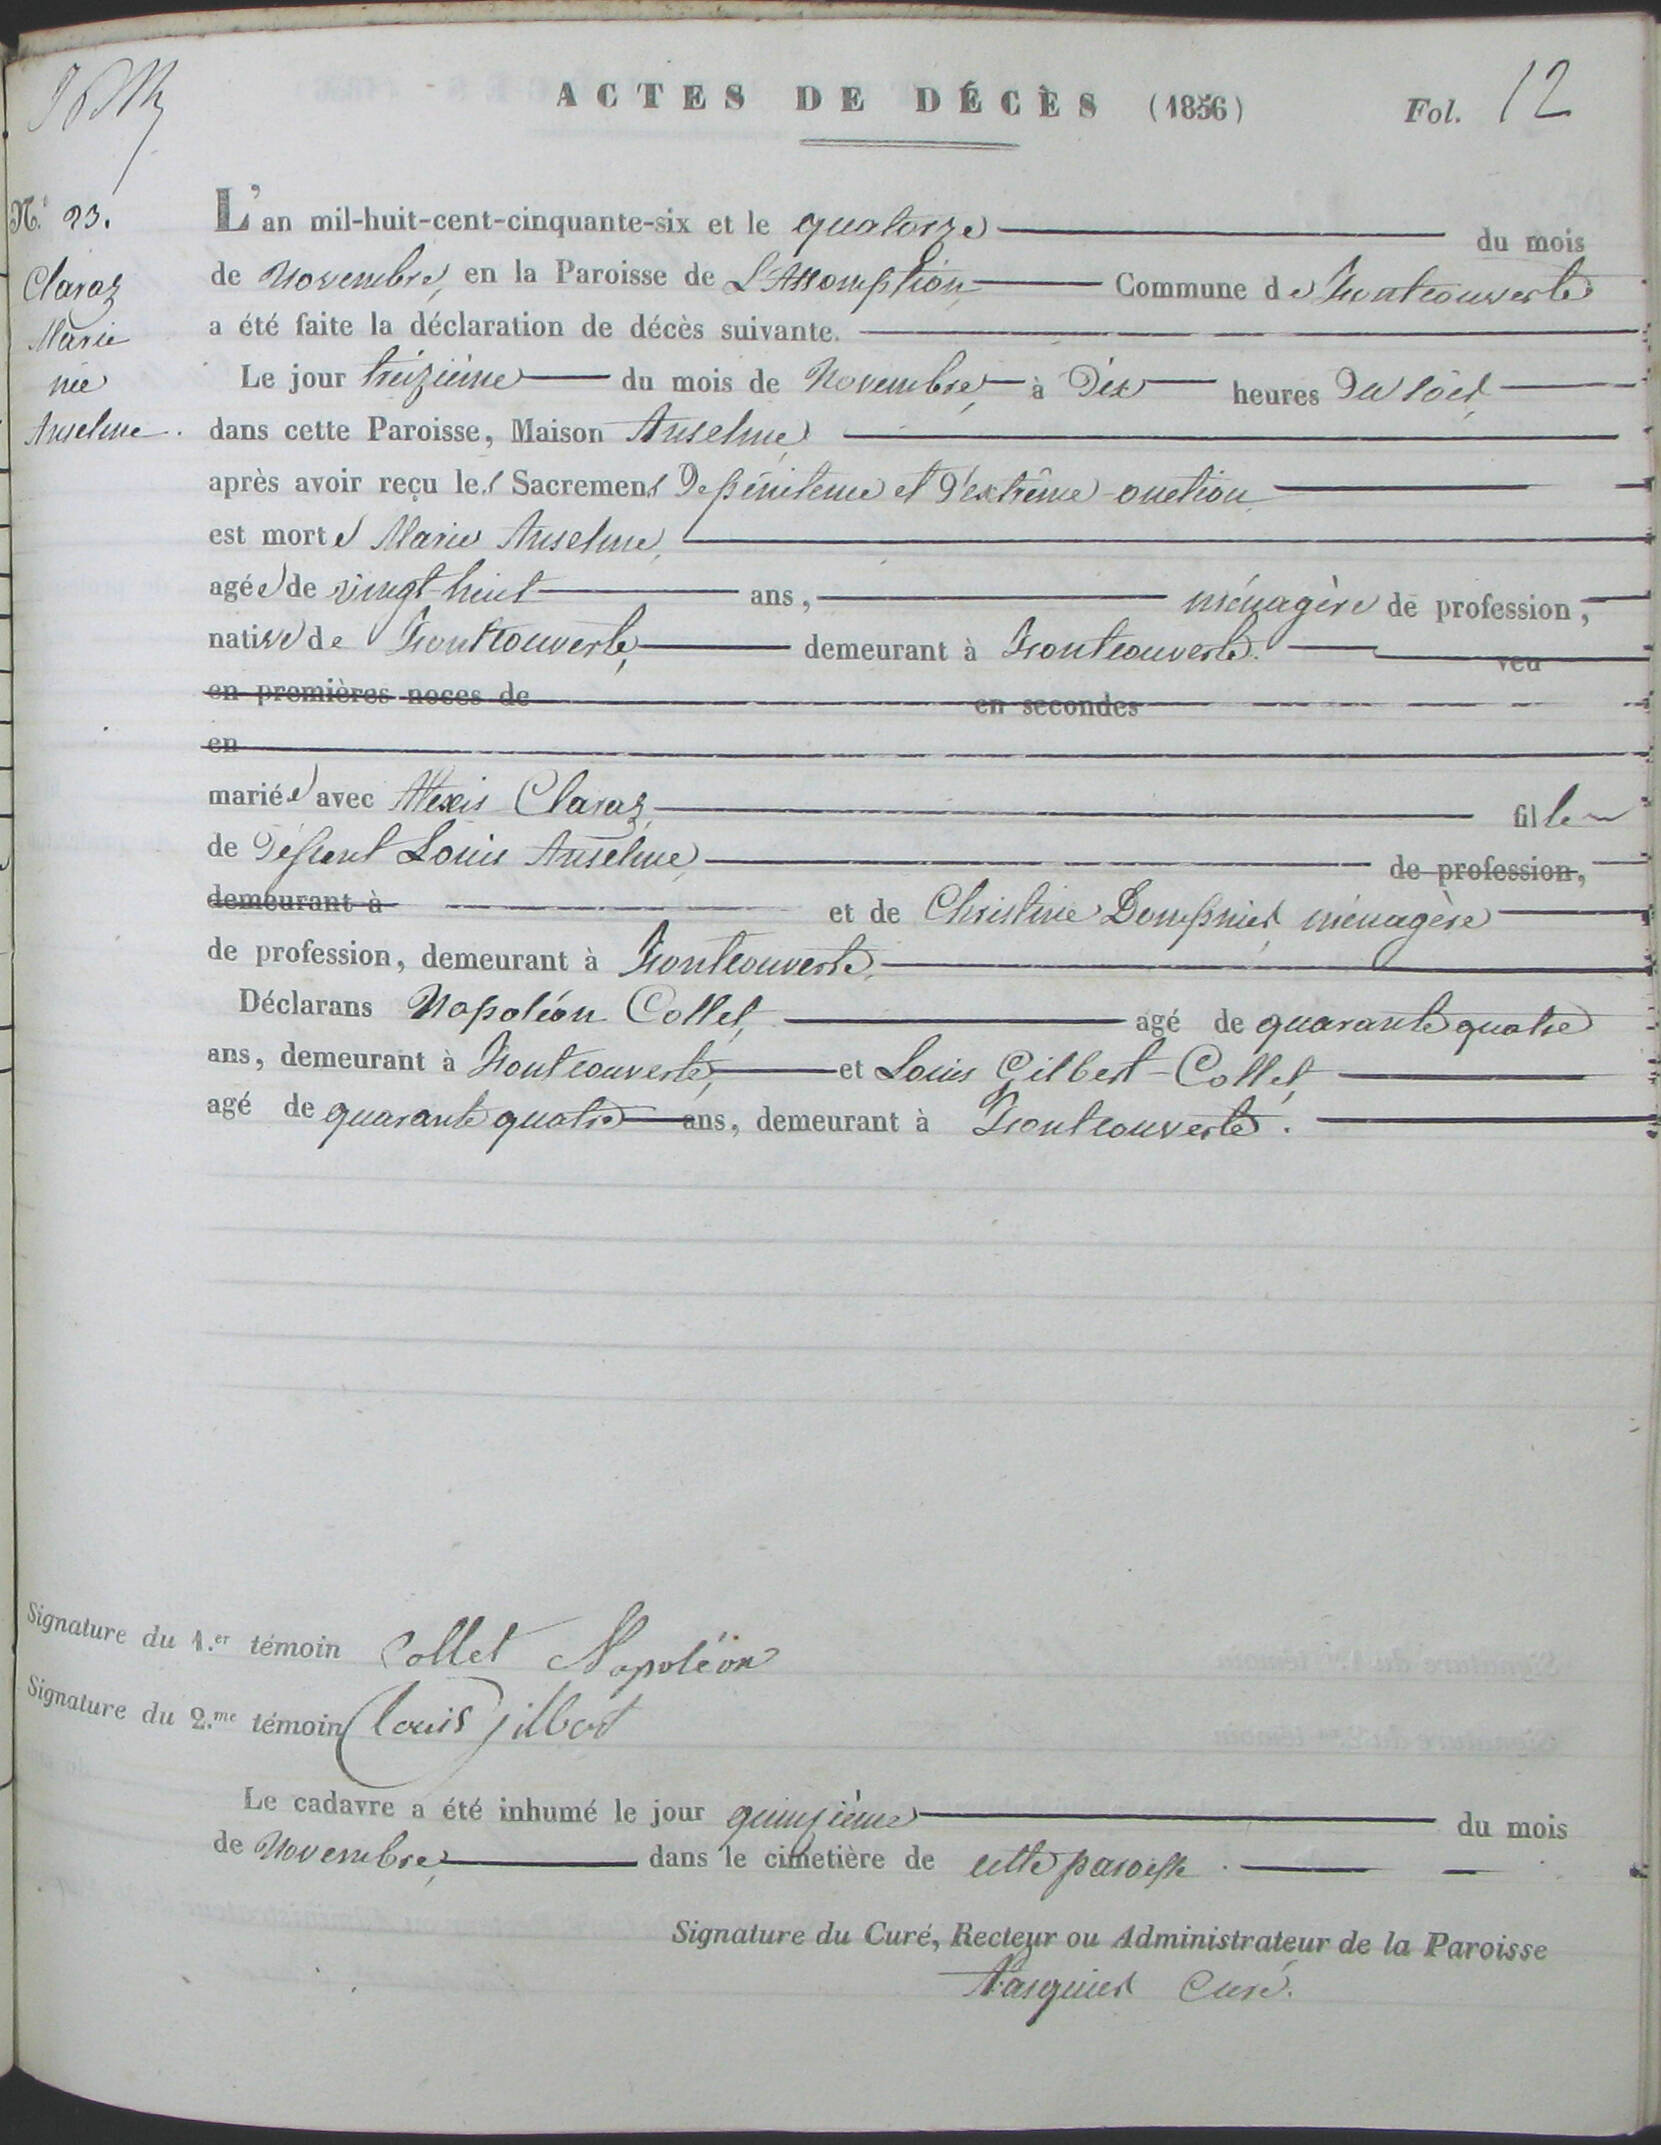 ACTES DE DÉCÈS (1856) Fol. 12
N.° 23.
Claraz
Marie
née
Anselme.
L'an mil-huit-cent-cinquante-six et le quatorze du mois
de Novembre, en la Paroisse de L'Assomption, Commune de Fontcouverte
a été faite la déclaration de décès suivante.
Le jour treizième du mois de Novembre, à Dix heures Du soir,
dans cette Paroisse, Maison Anselme,
après avoir reçu les Sacremens De pénitence et D'extrême-onction,
est morte Marie Anselme,
agée de vingt-huit ans, ménagère de profession,
native de Fontcouverte, demeurant à Fontcouverte. veu
en premières noces de en secondes
en
mariée avec Alexis Claraz, fille
de Défunt Louis Anselme, de profession,
demeurant à et de Christine Dompnier, ménagère
de profession, demeurant à Fontcouverte.
Déclarans Napoléon Collet, agé de quarante quatre
ans, demeurant à Fontcouverte, et Louis Gilbert-Collet,
agé de quarante quatre ans, demeurant à Fontcouverte.
Signature du 1.er témoin Collet Napoléon
Signature du 2.me témoin Louis Gilbert
Le cadavre a été inhumé le jour quinzième du mois
de Novembre, dans le cimetière de cette paroisse.
Signature du Curé, Recteur ou Administrateur de la Paroisse
Curé.